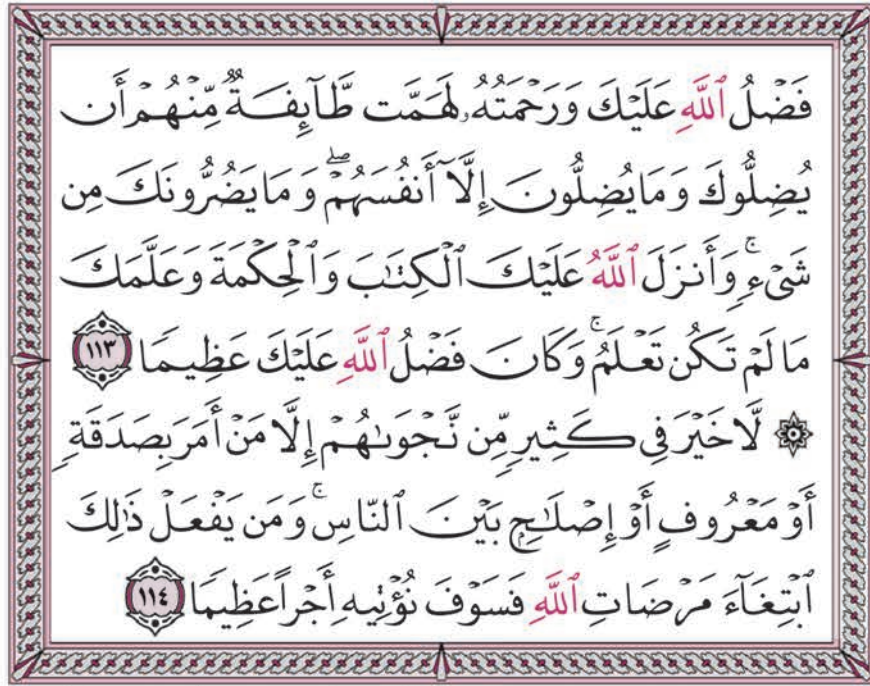 فَضْلُ ٱللَّهِ عَلَيْكَ وَرَحْمَتُهُۥ لَهَمَّت طَّآئِفَةٌ مِّنْهُمْ أَن
يُضِلُّوكَ وَمَا يُضِلُّونَ إِلَّآ أَنفُسَهُمْ ۖ وَمَا يَضُرُّونَكَ مِن
شَىْءٍ ۚ وَأَنزَلَ ٱللَّهُ عَلَيْكَ ٱلْكِتَٰبَ وَٱلْحِكْمَةَ وَعَلَّمَكَ
مَا لَمْ تَكُن تَعْلَمُ ۚ وَكَانَ فَضْلُ ٱللَّهِ عَلَيْكَ عَظِيمًا ١١٣
۞ لَّا خَيْرَ فِى كَثِيرٍ مِّن نَّجْوَىٰهُمْ إِلَّا مَنْ أَمَرَ بِصَدَقَةٍ
أَوْ مَعْرُوفٍ أَوْ إِصْلَٰحٍۭ بَيْنَ ٱلنَّاسِ ۚ وَمَن يَفْعَلْ ذَٰلِكَ
ٱبْتِغَآءَ مَرْضَاتِ ٱللَّهِ فَسَوْفَ نُؤْتِيهِ أَجْرًا عَظِيمًا ١١٤